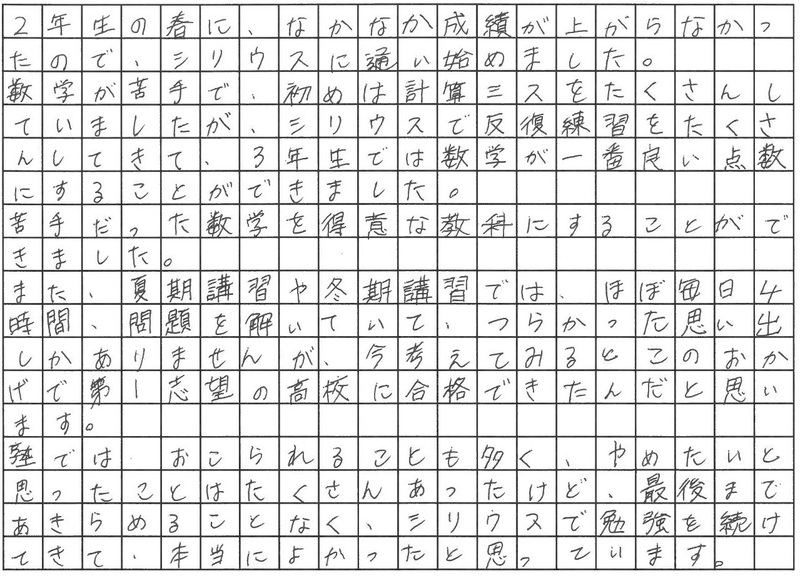 2年生の春に、なかなか成績が上がらなかっ
たので、シリウスに通い始めました。
数学が苦手で、初めは計算ミスをたくさんし
ていましたが、シリウスで反復練習をたくさ
んしてきて、3年生では数学が一番良い点数
にすることができました。
苦手だった数学を得意な教科にすることがで
きました。
また、夏期講習や冬期講習では、ほぼ毎日4
時間、問題を解いていて、つらかった思い出
しかありませんが、今考えてみるとこのおか
げで第1志望の高校に合格できたんだと思い
ます。
塾では、おこられることも多く、やめたいと
思ったことはたくさんあったけど、最後まで
あきらめることなく、シリウスで勉強を続け
てきて、本当によかったと思っています。